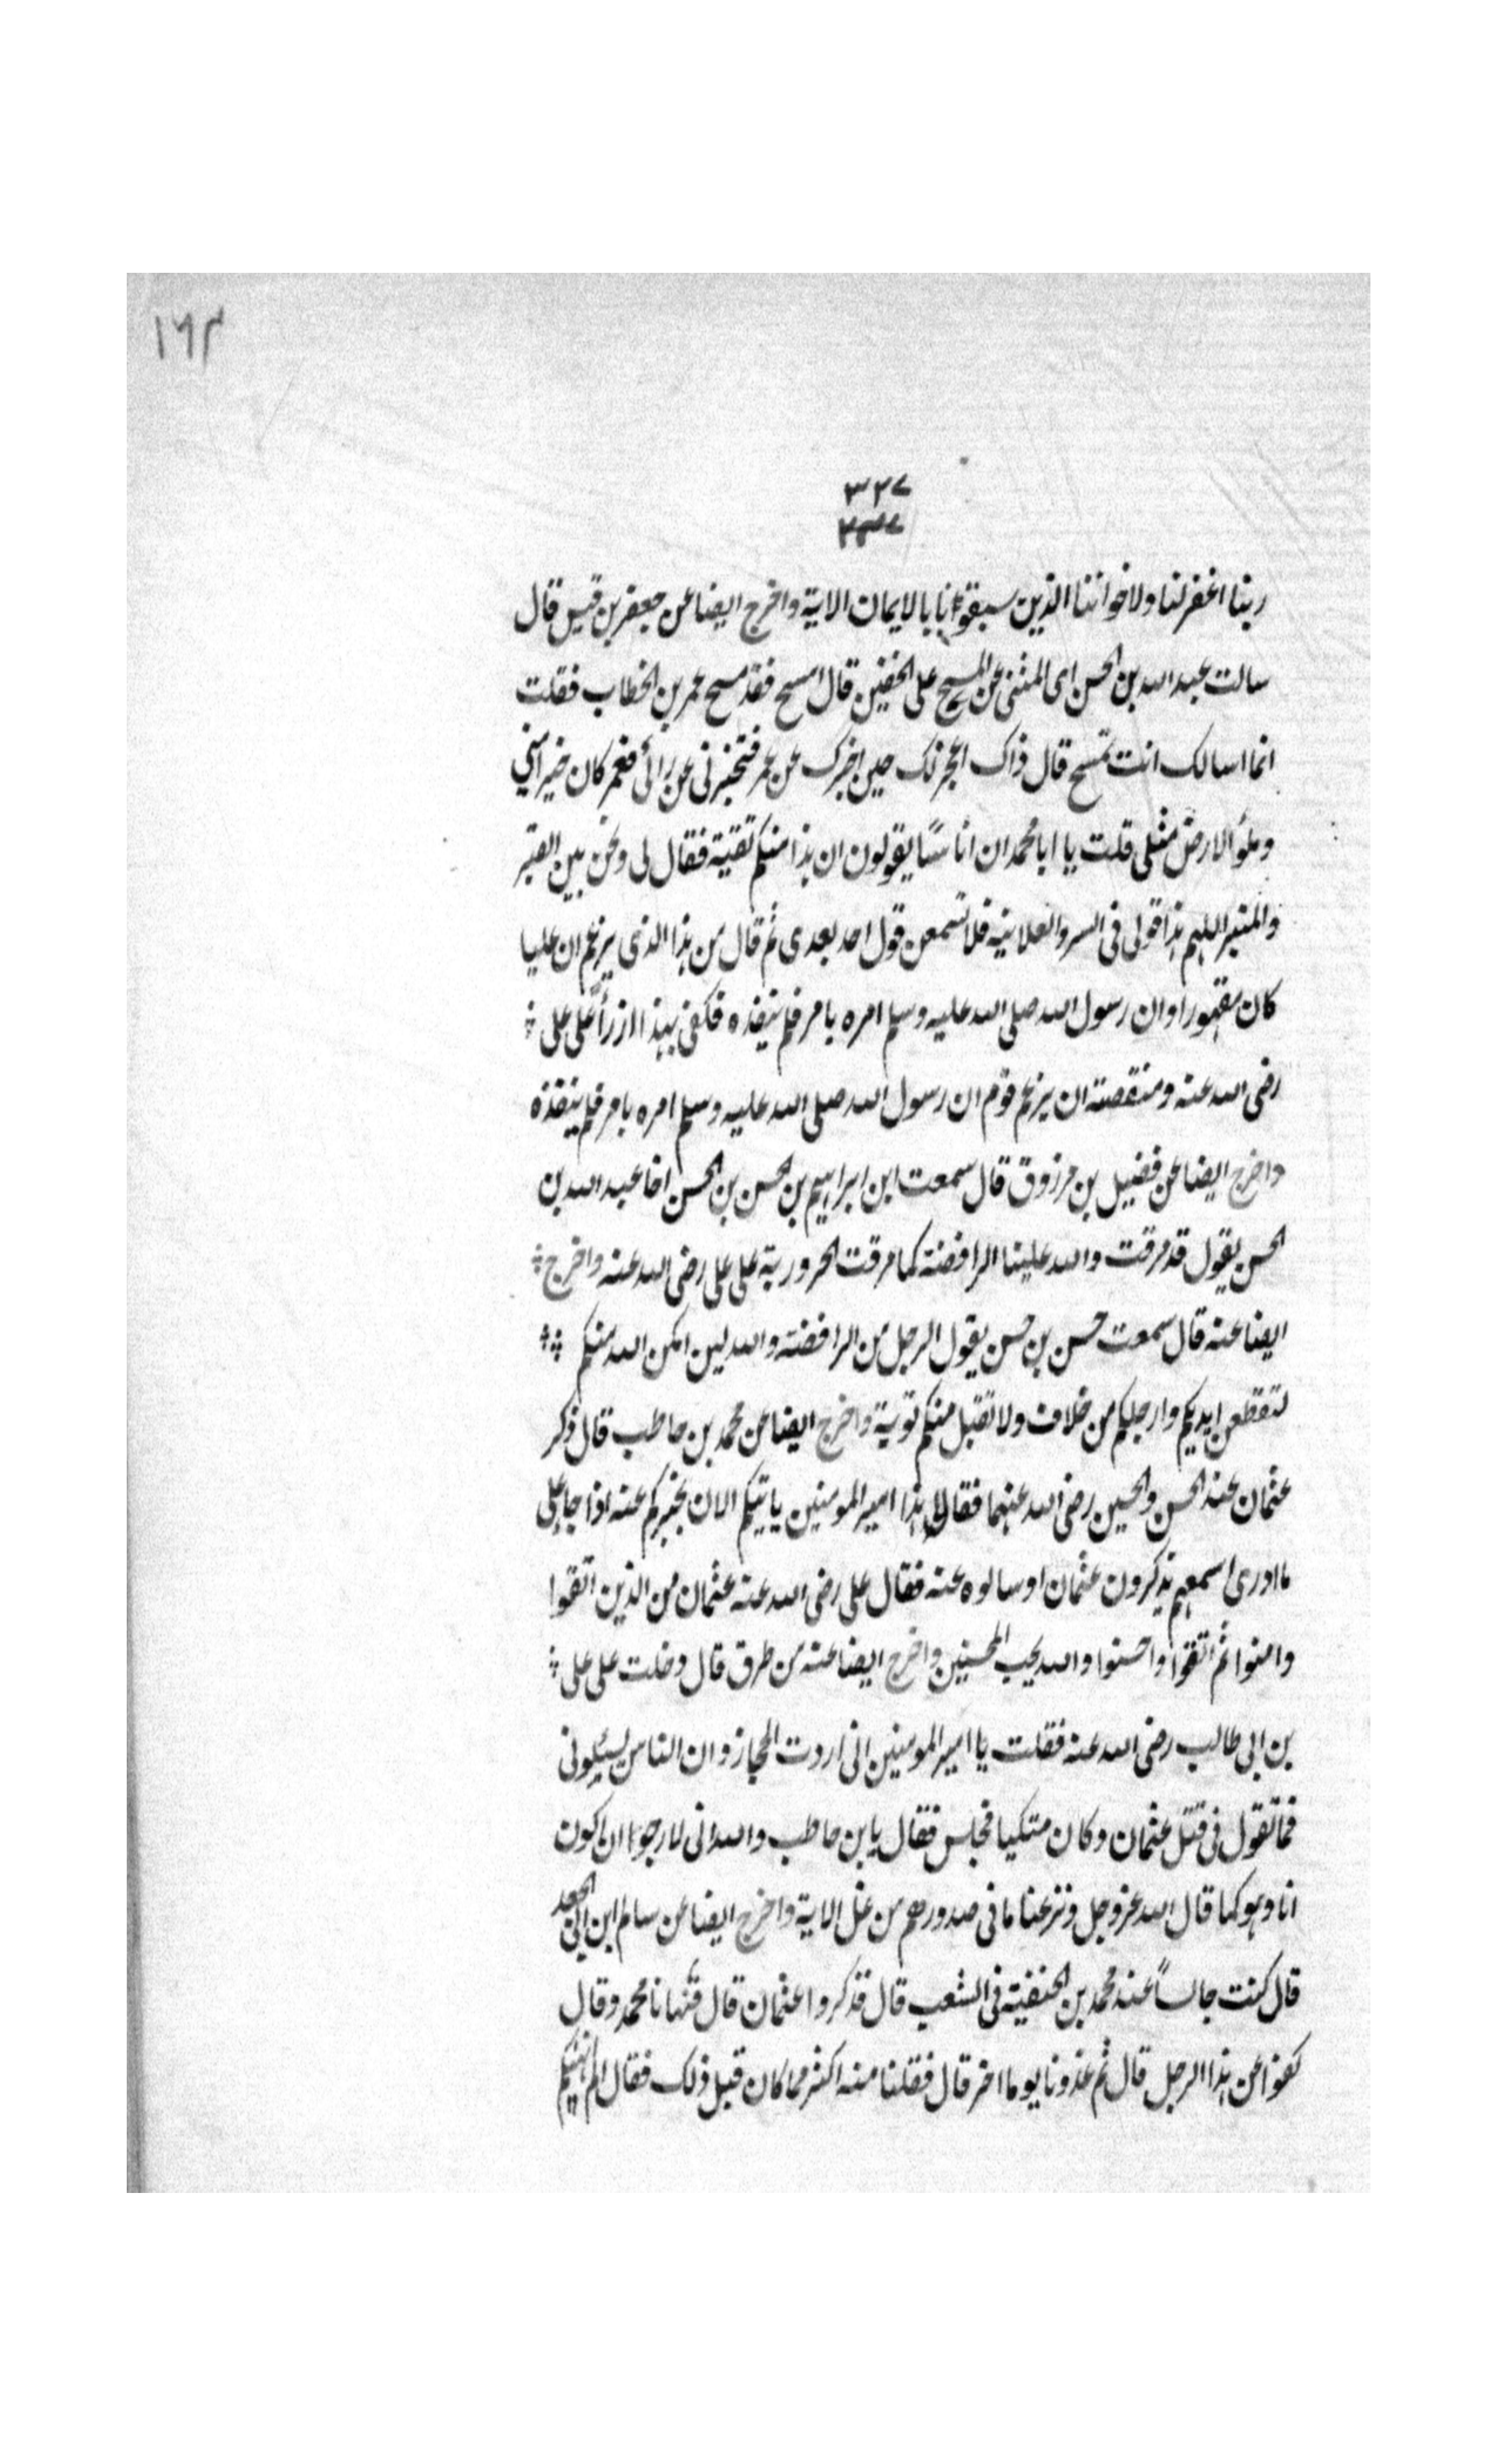 ١٦٣
٣٢٧
ربنا اغفر لنا ولاخواننا الذين سبقونا بالايمان الاية واخرج ايضا عن جعفر بن قيس قال
سالت عبد الله بن الحسن اى المثنى عن المسح على الخفين قال امسح فقد مسح عمر بن الخطاب فقلت
انما اسالك انت تمسح قال ذاك اعجز لك حين اخبرك عن عمر فتخبرنى عن رائى فعمر كان خير امنى
وملؤ الارض مثلى قلت يا ابا محمد ان اناسًا يقولون ان هذا منكم تقية فقال لى ونحن بين القبر
والمنبر اللهم هذا قولى فى السر والعلانيه فلا تسمعن قول احد بعدى ثم قال من هذا الذى يزعم ان عليا
كان مقهورا وان رسول الله صلى الله عليه وسلم امره بامر فلم ينفذه فكفى بهذا ازرأً على على
رضى الله عنه ومنقصته ان يزعم قوم ان رسول الله صلى الله عليه وسلم امره بامر فلم ينفذه
واخرج ايضا عن فضيل بن مرزوق قال سمعت ابن ابراهيم بن الحسن بن الحسن اخا عبد الله بن
الحسن يقول قد مرقت والله علينا الرافضة كما مرقت الحرورية على على رضى الله عنه واخرج
ايضا عنه قال سمعت حسن بن حسن يقول الرجل من الرافضة والله لين امكن الله منكم
لتقطعن ايديكم وارجلكم من خلاف ولا تقبل منكم توبة واخرج ايضا عن محمد بن حاطب قال ذكر
عثمان عند الحسن والحسين رضى الله عنهما فقال هذا امير المومنين ياتيكم الان يخبركم عنه اذا جا على
ما ادرى اسمعهم يذكرون عثمان او سالوه عنه فقال على رضى الله عنه عثمان من الذين اتقوا
وامنوا ثم اتقوا واحسنوا والله يحب المحسنين واخرج ايضا عنه من طرق قال دخلت على على
بن ابى طالب رضى الله عنه فقلت يا امير المومنين انى اردت الحجاز وان الناس يسئلونى
فما تقول فى قتل عثمان وكان متكيا فجلس فقال يا بن حاطب والله انى لارجوا ان اكون
انا وهو كما قال الله عزوجل ونزعنا ما فى صدورهم من غل الاية واخرج ايضا عن سالم ابن ابى الجعد
قال كنت جالسًا عند محمد بن الحنفية فى الشعب قال فذكروا عثمان قال فنهانا محمد وقال
كفوا عن هذا الرجل قال ثم غدونا يوما اخر قال فقلنا منه اكثر مما كان قبل ذلك فقال الم انهكم